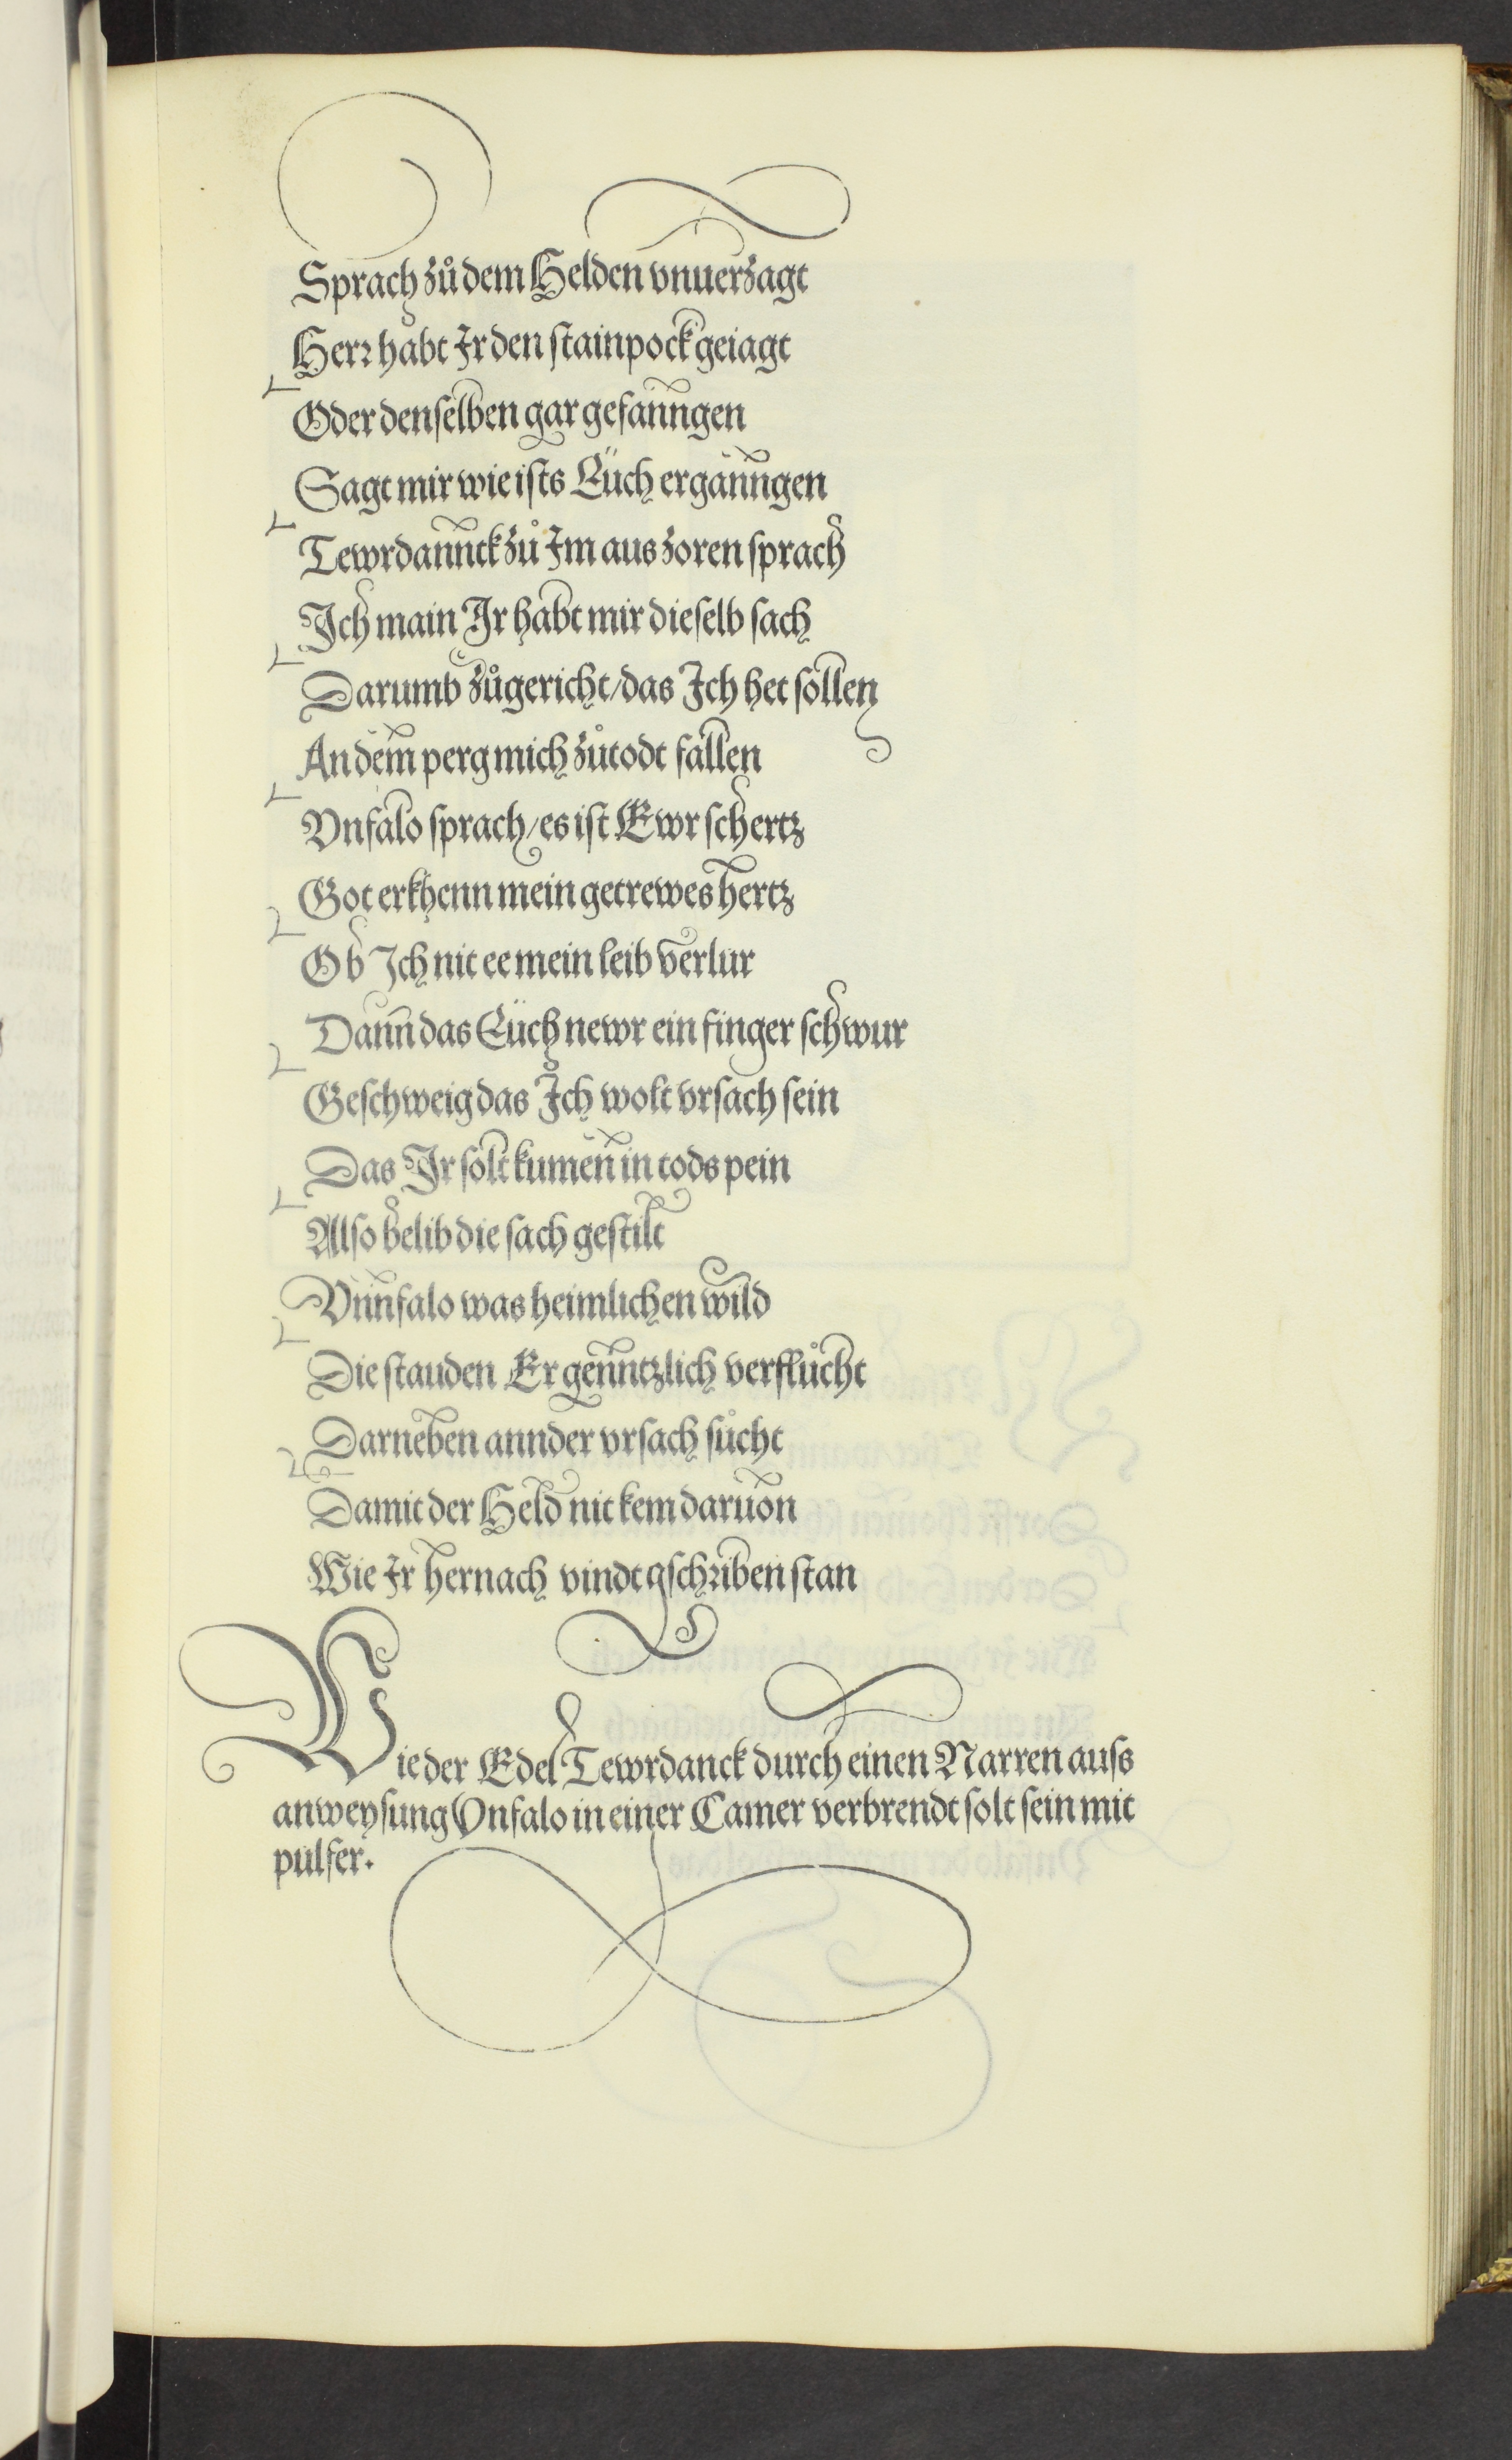 Sprach zuͦ dem Helden vnuerzagt
Herꝛ habt Ir den ſtainpock geiagt
Oder denſelben gar gefanngen
Sagt mir wie iſts Eüch erganngen
Tewrdannck zuͦ Im aus zoren ſprach
Ich main Ir habt mir dieſelb ſach
Darumb zuͦgericht / das Ich het ſollen
An dem perg mich zuͦ todt fallen
Vnfalo ſprach / es iſt Ewr ſchertz
Got erkhenn mein getrewes hertz
Ob Ich nit ee mein leib verlur
Dann das Eüch newr ein finger ſchwur
Geſchweig das Ich wolt vrſach ſein
Das Ir ſolt kumen in tods pein
Alſo belib die ſach geſtilt
Vnnfalo was heimlichen wild
Die ſtauden Er genntzlich verfluͦcht
Darneben annder vrſach ſuͦcht
Damit der Held nit kem daruon
Wie Ir hernach vindt gſchꝛiben ſtan
Wie der Edel Tewrdanck durch einen Narren auſs
anweyſung Vnfalo in einer Camer verbrendt ſolt ſein mit
pulfer.